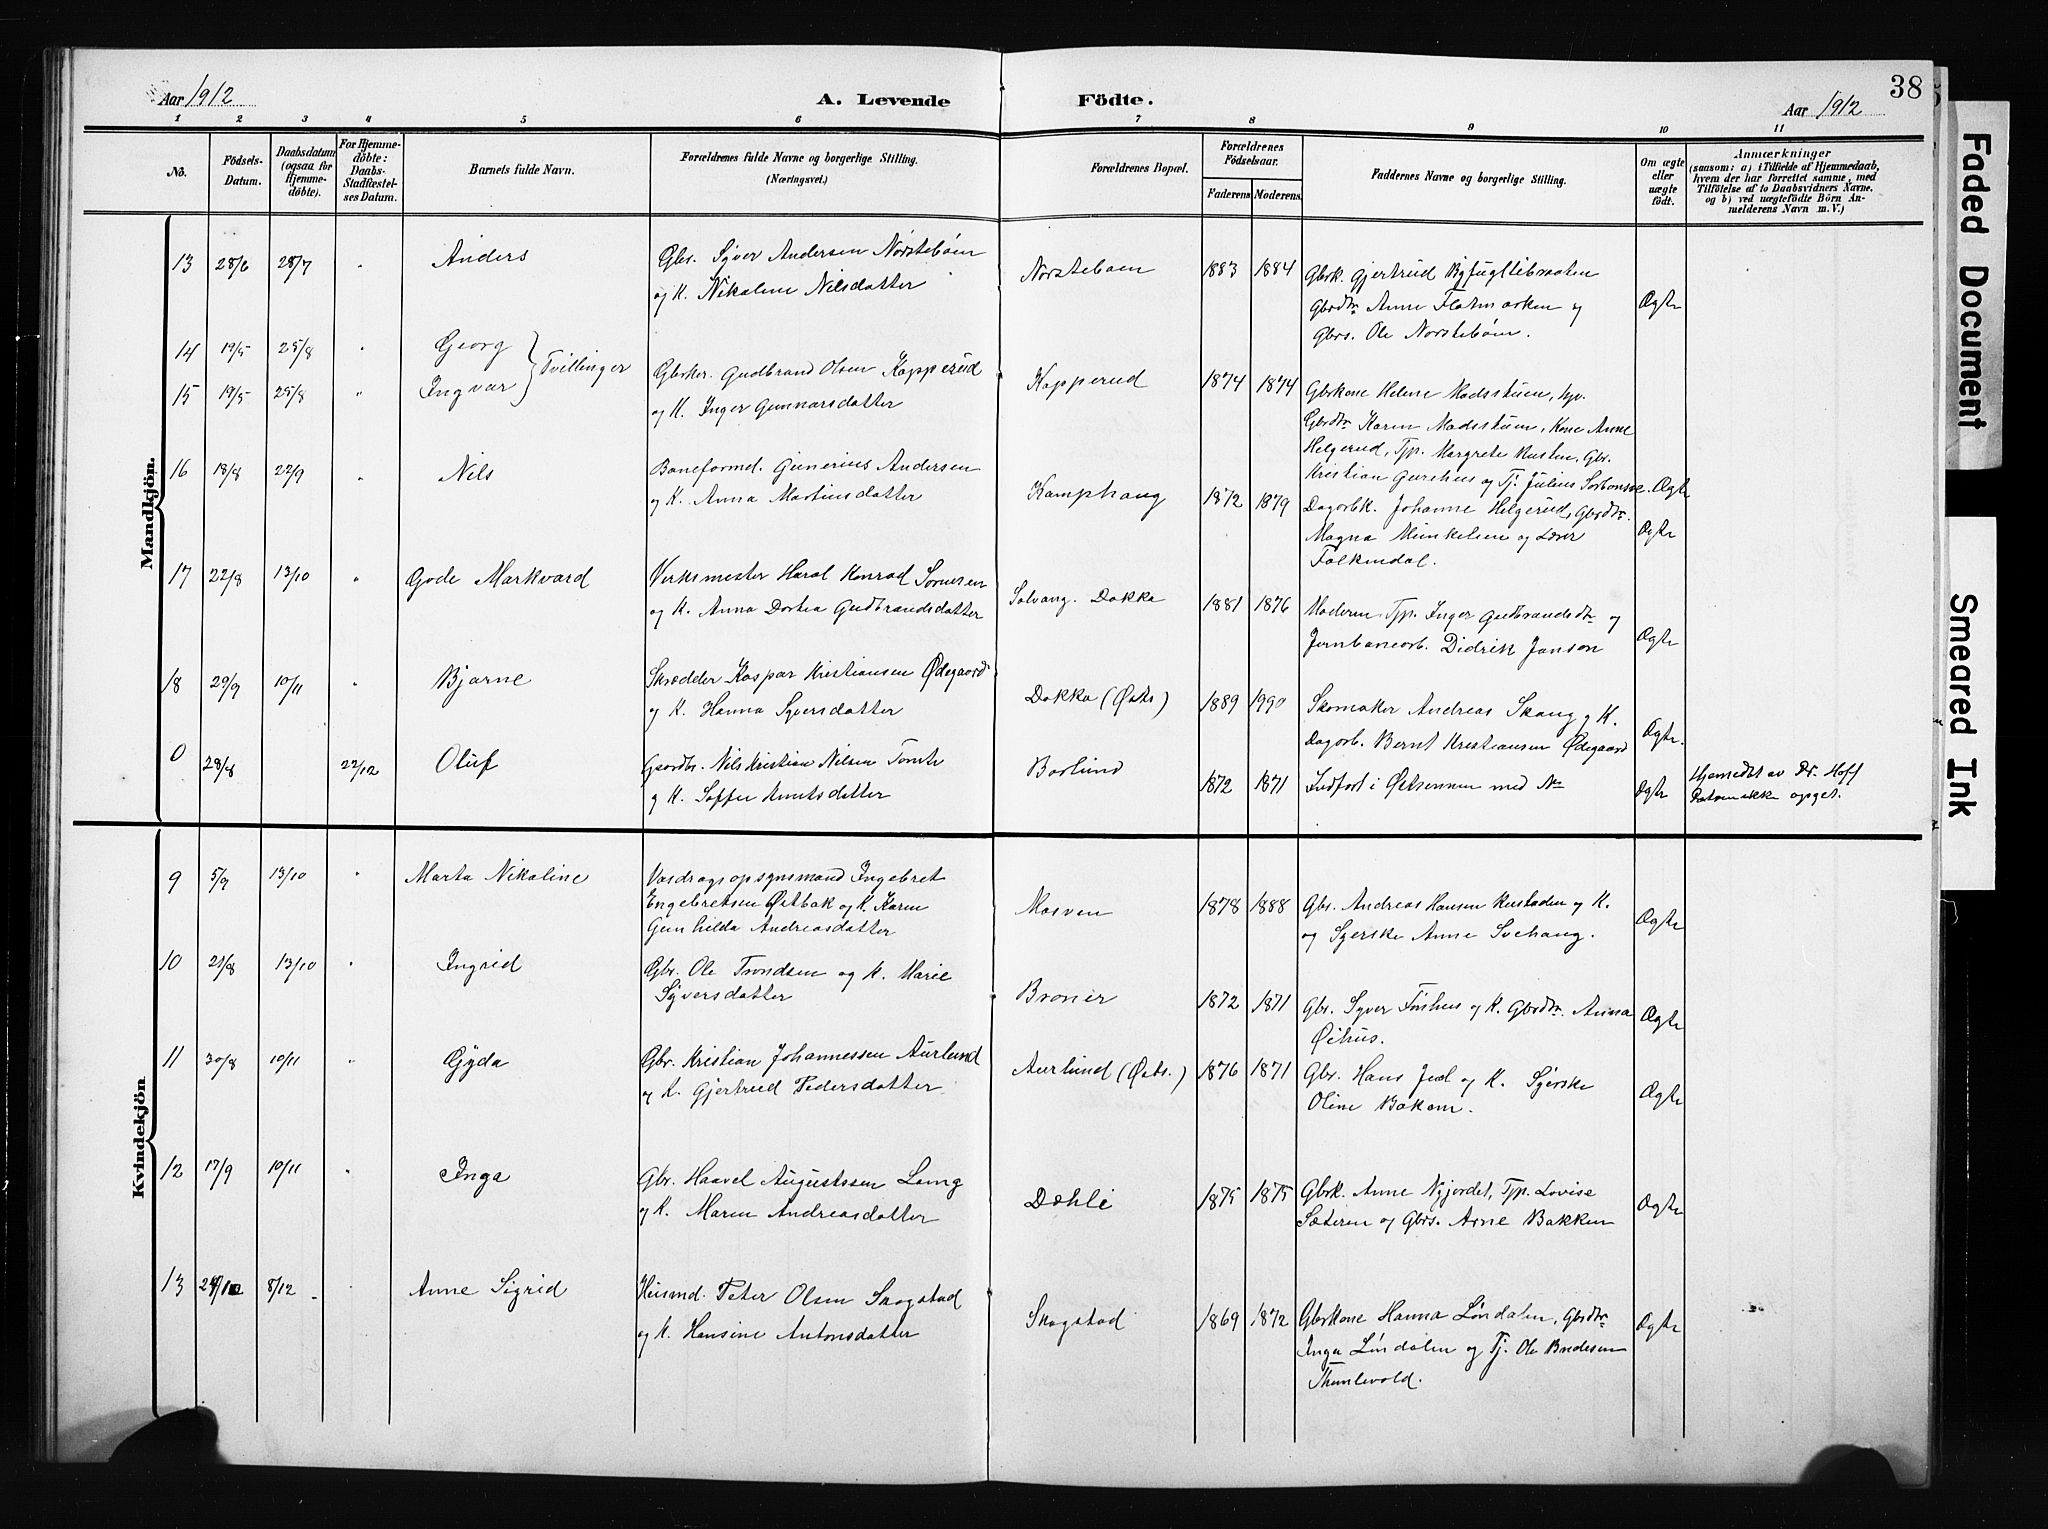 Aar 1912
A. Levende Födte.
38
Aar 1912
1 2 3 4 5 6 7 8 9 10 11
No.
Födsels-Datum.
Daabsdatum (ogsaa for Hjemmedöbte).
For Hjemmedöbte: Daabs-Stadfæstelses Datum.
Barnets fulde Navn.
Forældrenes fulde Navne og borgerlige Stilling. (Næringsvei.)
Forældrenes Bopæl.
Forældrenes Födselsaar.
Faderens Moderens
Faddernes Navne og borgerlige Stilling.
Om ægte eller uægte födt.
Anmærkninger
(saasom: a) i Tilfælde af Hjemmedaab, hvem der har forrettet samme, med Tilföielse af to Daabsvidners Navne, og b) ved uægtefödte Börn Anmelderens Navn m. V.)
Mandkjön.
13 28/6 28/7 " Anders
Gbr. Syver Andersen Nørstebøen
og K. Nikoline Nilsdatter
Norsteboen 1883 1884
Gbrk. Gjertrud Bgfugltibraaten
Gbrdtr Anne Flatmarken og
Gbrs. Ole Norstebøen.
Ægte
14 19/5 25/8 " Georg
15 19/5 25/8 " Ingvar } Tvillinger
Gbrker. Gudbrand Olsen Kopperud
og K. Inger Gunnarsdatter
Kopperud 1874 1874
Gbrkone Helene Madsstuen, Hv.
Gbrdtr Karen Madsstuen, Kone Anne
Helgerud, Tjp. Margrete Rusten, Gbr.
Kristian Garehus og Tj. Julius Sorbonsve.
Ægte
16 18/8 22/9 " Nils
Baneformd. Gunerius Andersen
og K. Anna Martinsdatter
Kamphaug 1872 1879
Dagarbk. Johanne Helgerud, Gbrdtr.
Magna Munkelien og Lærer
Falkendal.
Ægte
17 22/8 13/10 " Gode Markvard
Verksmester Haral Konrad Sornesen
og K. Anna Dortea Gudbrandsdatter
Solvang. Dokka 1881 1876
Moderen, Tjp. Inger Gudbrandsdtr og
Jernbanearb. Didrik Janson
Ægte
18 29/9 10/11 " Bjarne
Skrædder Kaspar Kristiansen Ødegaard
og K. Hanna Syversdatter
Dokka (Øsbs) 1889 1990
Skomaker Andreas Skaug og K.
Dagarb. Bernt Kristiansen Ødegaard
Ægte.
0 28/4 22/12 Oluf
Gaardbr. Nils Kristian Nilsen Tomte
og K. Soffie Knutsdatter
Borlund 1872 1871
Indført i Østsennen med No
Ægte
Hjemedøt av Dr. Hoff
Datum ikke opget.
Kvindekjön
9 5/9 13/10 " Marta Nikoline
Vasdragsopsynsmand Ingebret
Engebretsen Østbak og K. Karen
Gunhilda Andreasdatter
Masven 1878 1888
Gbr. Andreas Hansen Rustaden og K.
og Syerske Anne Svehaug.
Ægte
10 21/8 13/10 " Ingrid
Gbr. Ole Trondsen og K. Marie
Syversdatter
Broner 1872 1871
Gbr. Syver Finhus og K. Gbrdtr. Anna
Øihus.
Ægte
11 30/8 10/11 " Gyda
Gbr. Kristian Johannessen Aurlund
og K. Gjertrud Pedersdatter
Aurlund (Øsbs.) 1876 1871
Gbr. Hans Juel og K. Syerske
Oline Bakom.
Ægte
12 17/9 10/11 " Inga
Gbr. Haavel Augustssen Lang
og K. Maren Andreasdatter
Dæhli 1875 1875
Gbrk. Anne Nyjordet, Tjp. Lovise
Sæteren og Gbrs. Arne Bakken
Ægte
13 8/12 Anne Sigrid
Husmd. Peter Olsen Skogstad
og K. Hansine Antonsdatter
Skogstad 1869 1872
Gbrkone Hanna Løndalen, Gbrdtr
Inga Løndalen og Tj. Ole Bredesen
Thonlevold.
Ægte
Faded Document
Smeared Ink